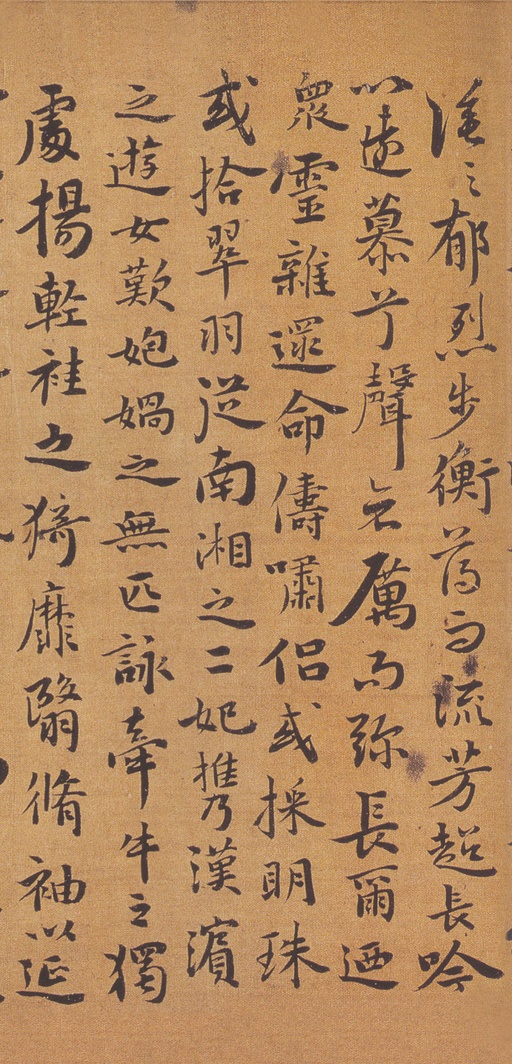 塗之郁烈步衡薄而流芳超長吟
以遠慕兮聲哀厲而彌長爾迺
眾靈雜遝命儔嘯侶或採明珠
或拾翠羽從南湘之二妃攜漢濱
之遊女歎匏媧之無匹詠牽牛之獨
處揚輕袿之猗靡翳脩袖以延